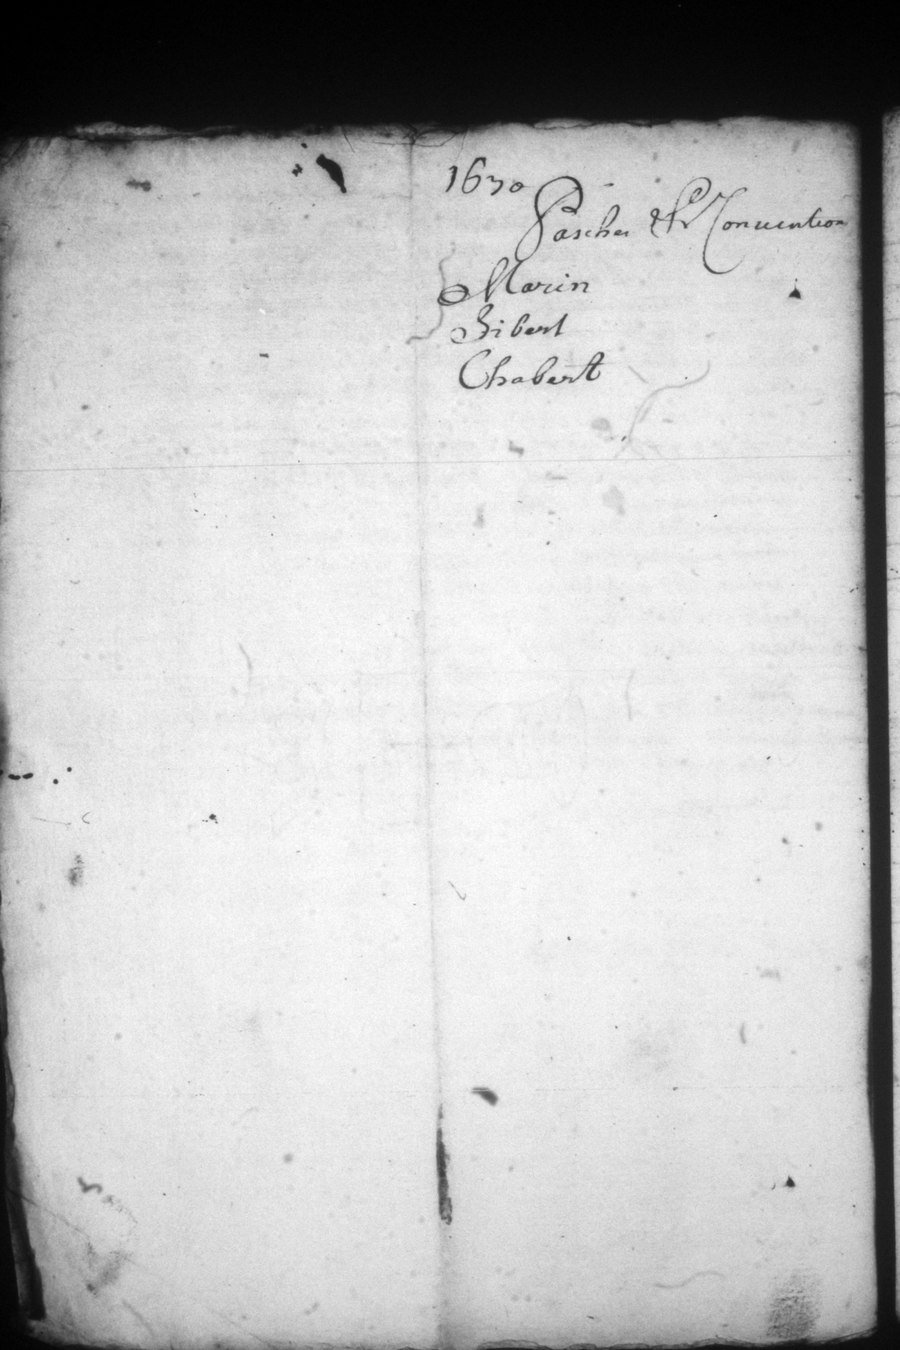 1630
Paches & Convention
Marin
Gibert
Chabert